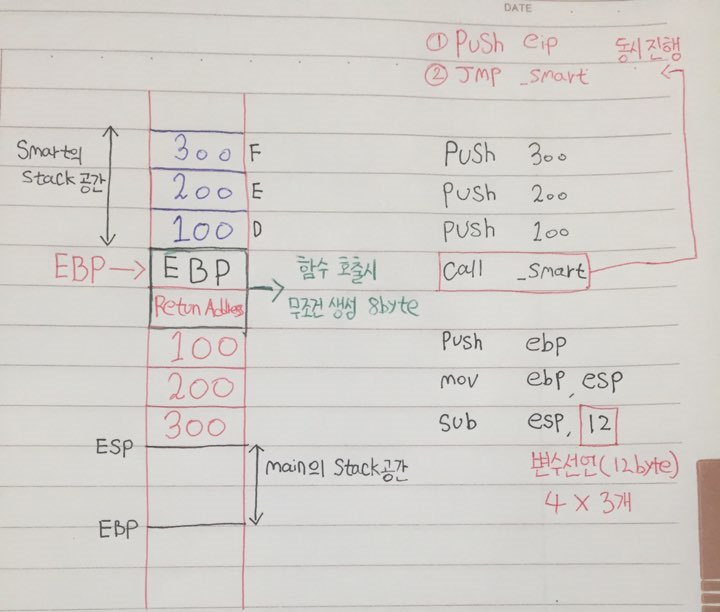 DATE
① Push eip 동시진행
② JMP _smart
Smart의
Stack공간
300 F
200 E
100 D
EBP → EBP
Retun Address
함수 호출시
무조건 생성 8byte
100
200
300
ESP
main의 Stack공간
EBP
PUSh 300
PUSh 200
PUSh 100
Call _smart
Push ebp
mov ebp, esp
sub esp, 12
변수선언(12byte)
4 X 3개